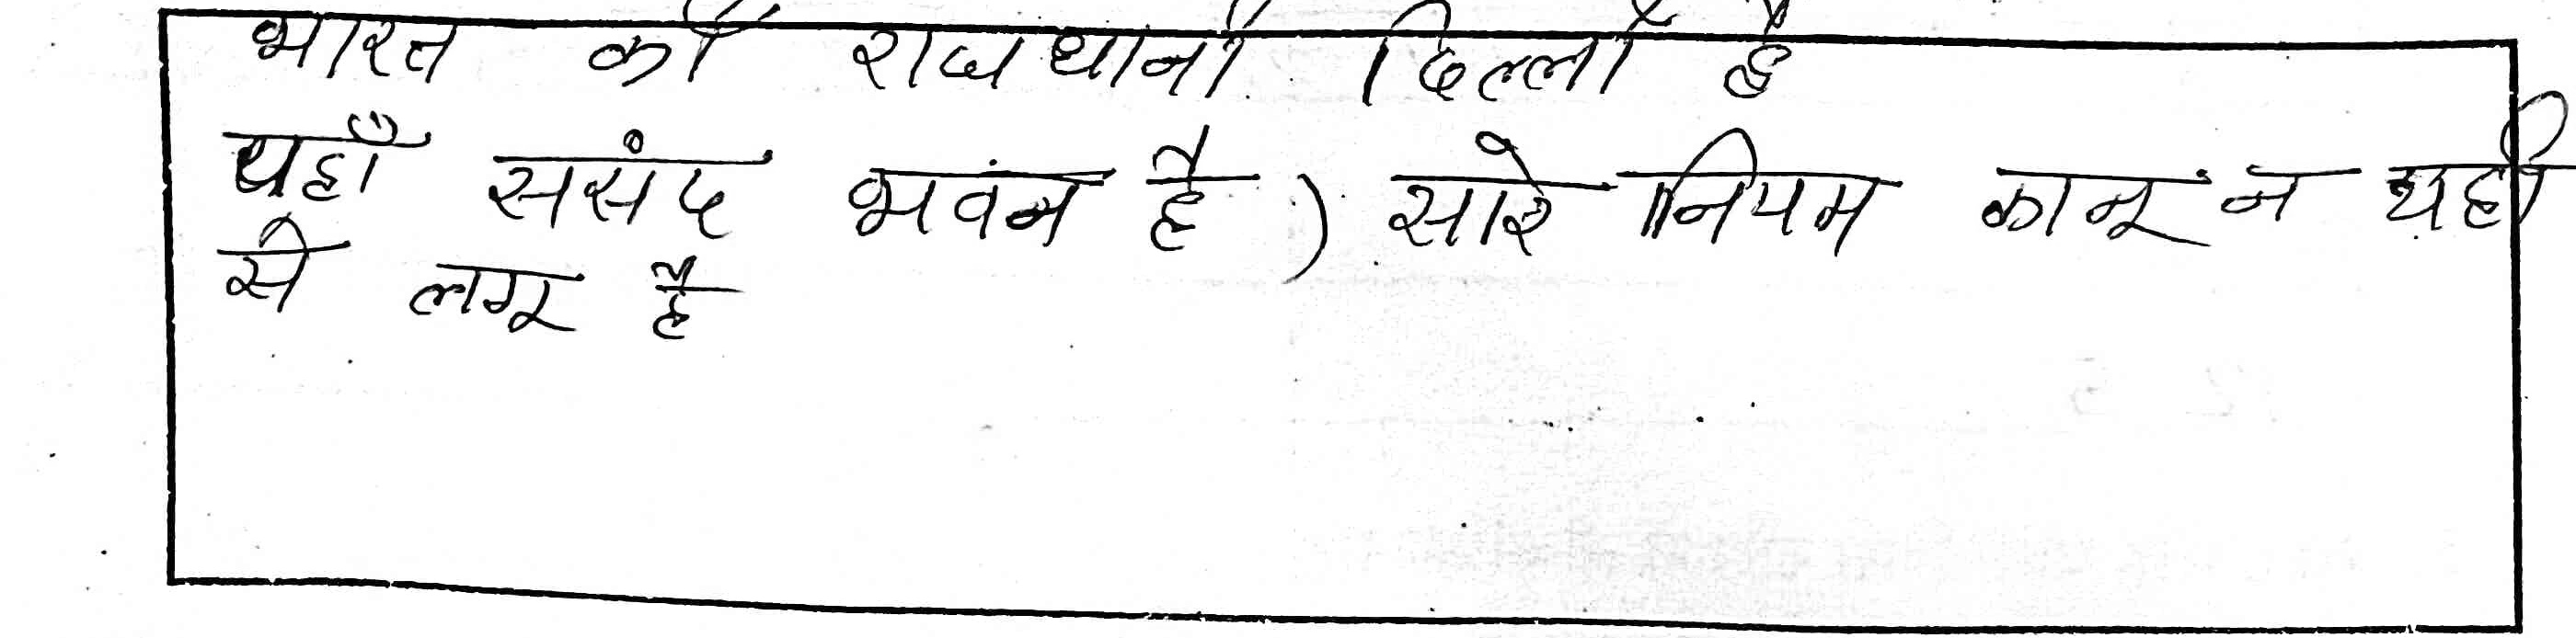 भारत की राजधानी दिल्ली है
यहाँ ससंद भवंन है) सारे नियम कानून यही
से लगू है